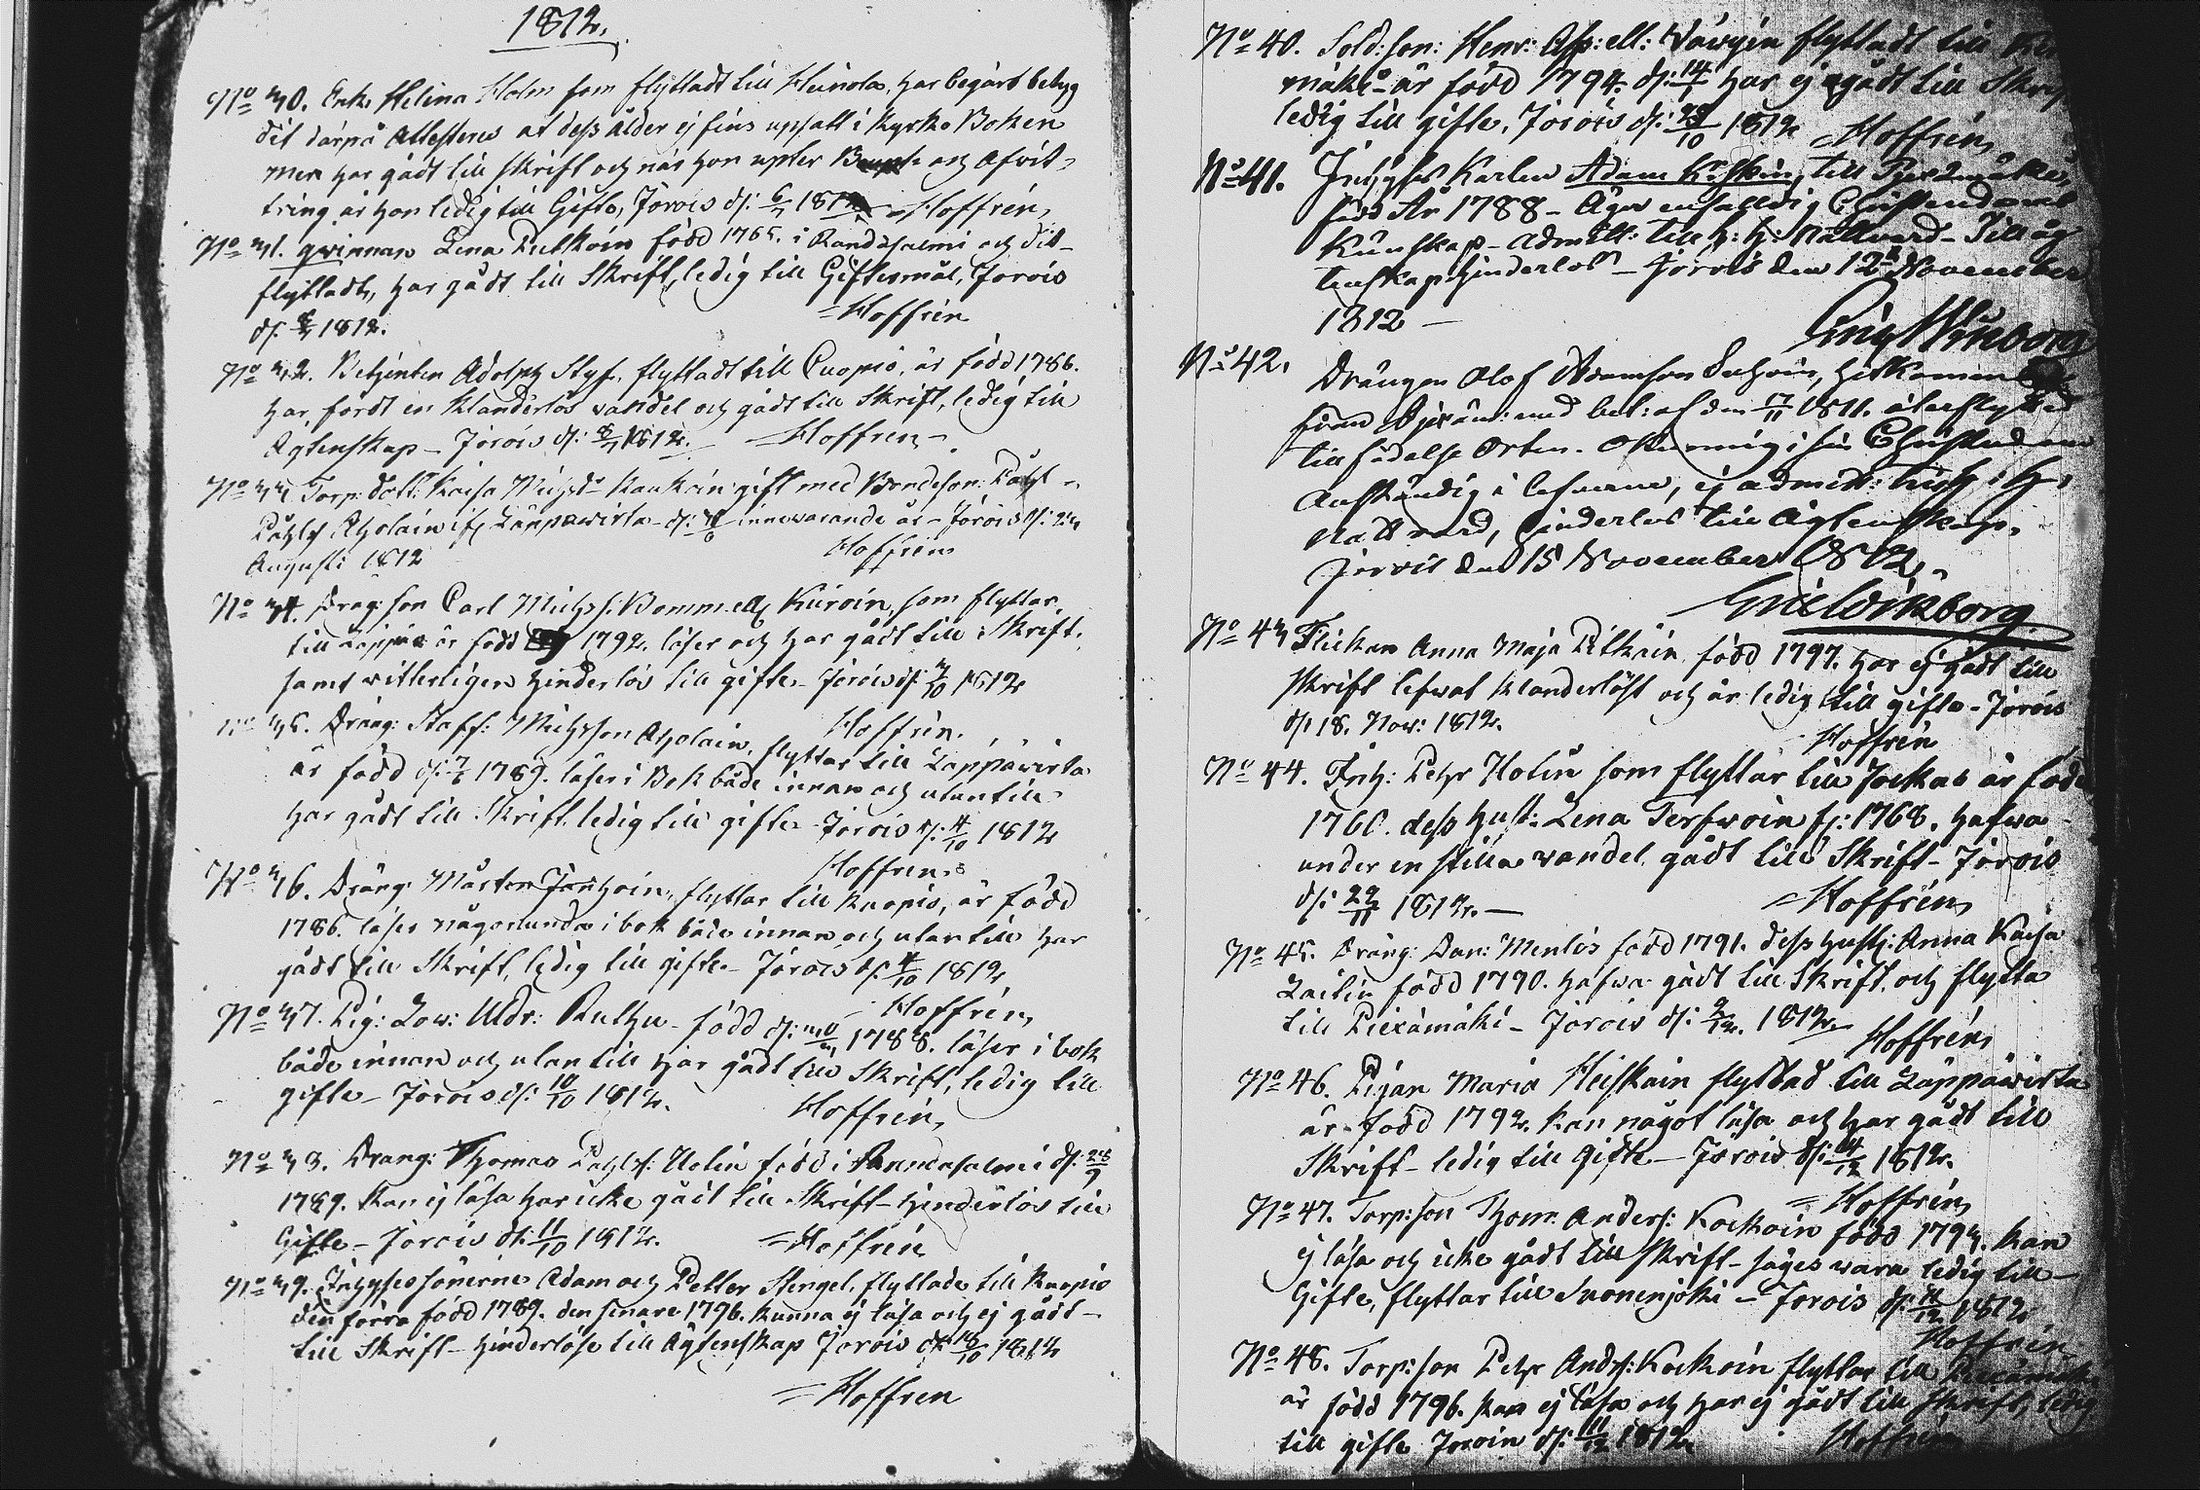 1812.
No 30. Enk. Helina Holm som flyttadt till Heinola, har begärt betyg
dit därpå Attesteres at dess ålder ej fins upsatt i Kyrko Boken
men har gådt till skrift och när hon upter och Afvit-
tring är hon ledig till Gifte, Jorois d: 6/7 1812 Hoffrén
No 31. qvinnan Lena Pitkoin född 1765. i Randasalmi och dit-
flyttadt, har gådt till Skrift, ledig till Giftermål, Jorois
d: 8/7 1812. Hoffrén
No 32. Betjenten Adolph Styf. flyttadt till Cuopio, är född 1786.
har fördt en klanderlös vandel och gådt till Skrift, ledig till
Agtenskap - Jorois d: 8/7 1812. Hoffrén
No 33 Torp: dott: Kaisa Michsdr Kaukoin gift med Bondeson Påhl
Påhlss Aholain i Läppäwirta - innewarande år - Jorois d: 23
Augusti 1812 Hoffrén
No 34. Dräg: son Carl Michss: Bomm ell Kuroin, som flyttar
till är född 1792. läser och har gådt till Skrift,
samt witterligen hinderlös till gifte - Jorois d: 3/10 1812
Hoffrén.
No 35. Dräng: Staff: Michsson Aholain, flyttar till Läppäwirta
är född d: 7/6 1789. läser i Bok både innan och utantill
har gådt till Skrift ledig till gifte - Jorois d: 4/10 1812
Hoffrén
No 36. Dräng Mårten Janhoin, flyttar till Kuopio, är född
1786. läser någorlunda i bok både innan och utantill har
gådt till Skrift, ledig till gifte - Jorois d: 4/10 1812
Hoffrén
No 37. Pig: Low: Uldr: Ruthu - född d: 1788. läser i bok
både innan och utan till har gådt till Skrift, ledig till
gifte - Jorois d: 10/10 1812.
Hoffrén
No 38. Dräng: Thomas Pahlss: Holin född i Randasalmi d: 28/9
1789. kan ej läsa har icke gådt till Skrift - hinderlös till
Gifte - Jorois d: 11/10 1812. Hoffrén
No 39. Inhysessönerne Adam och Petter Stengel, flyttade till Kuopio
den förra född 1789. den senare 1796. kunna ej läsa och ej gådt
till Skrift - hinderlöse till Ägtenskap Jorois d: 18/10 1812
Hoffrén
No 40. Sold: son: Henr: Asp: ell: Wäwyin flyttadt till
mäki - är född 1794. d: 14/1 har ej gådt till Skrif
ledig till gifte, Jorois d: 28/10 1812 Hoffrén
No 41. Inhyses Karlen Adam Kiskin, till Piexämäki,
född År 1788 - Äger enfalldig Christendoms
Kunskap - Admitt: till h: h: Nattvard - Till äg
tenskap hinderlös - Jorois den 12 November
1812 -
Eric Winborg
No 42. Drängen Olof Adamson Suhoin, hitkommen
från Piexäm: med bet: af den 17/11 1811. återflyttad
till födelse Orten. Okunnig i sin Christendom
Anständig i lefverne, ej admitt: till h: h:
Nattvard, hinderlös till Ägtenskap.
Jorois den 15 November 1812.
Eric Winborg
No 43 Flickan Anna Maja Pitkäin född 1797. har ej gådt till
skrift lefwat klanderlöst och är ledig till gifte - Jorois
d: 18. Nov: 1812.
Hoffrén
No 44. Inh: Pehr Holin som flyttar till Jockas är född
1760. dess hust: Lena Terfwoin f: 1768. hafwa
under en stilla vandel, gådt till Skrift - Jorois
d: 22/11 1812. - Hoffrén
No 45. Dräng: Dan: Menlös född 1791. dess hust: Anna Kaisa
Laitin född 1790. hafwa gådt till Skrift, och flytta
till Piexämäki - Jorois d: 2/12. 1812. Hoffrén
No 46. Pigan Maria Heiskain flyttad till Läppäwirta
är född 1792. kan något läsa och har gådt till
Skrift - ledig till Gifte - Jorois d: 4/12 1812.
Hoffrén
No 47. Torp: son Thom: Anders: Kockoin född 1793. kan
ej läsa och icke gådt till skrift - säges wara ledig till
Gifte, flyttar till Suonenjoki - Jorois d: 11/12 1812
Hoffrén
No 48. Torp: son Pehr Andrs: Kockoin flyttar till Piexämäki
är född 1796. kan ej läsa och har ej gådt till Skrift, ledig
till gifte Jorois d: 11/12 1812. Hoffrén